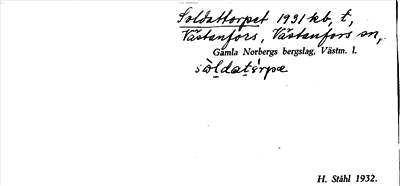 Soldattorpet 1931 kb, t,
Västanfors, Västanfors sn,
Gamla Norbergs bergslag, Västm. l.
sòldatórpe
H. Ståhl 1932.